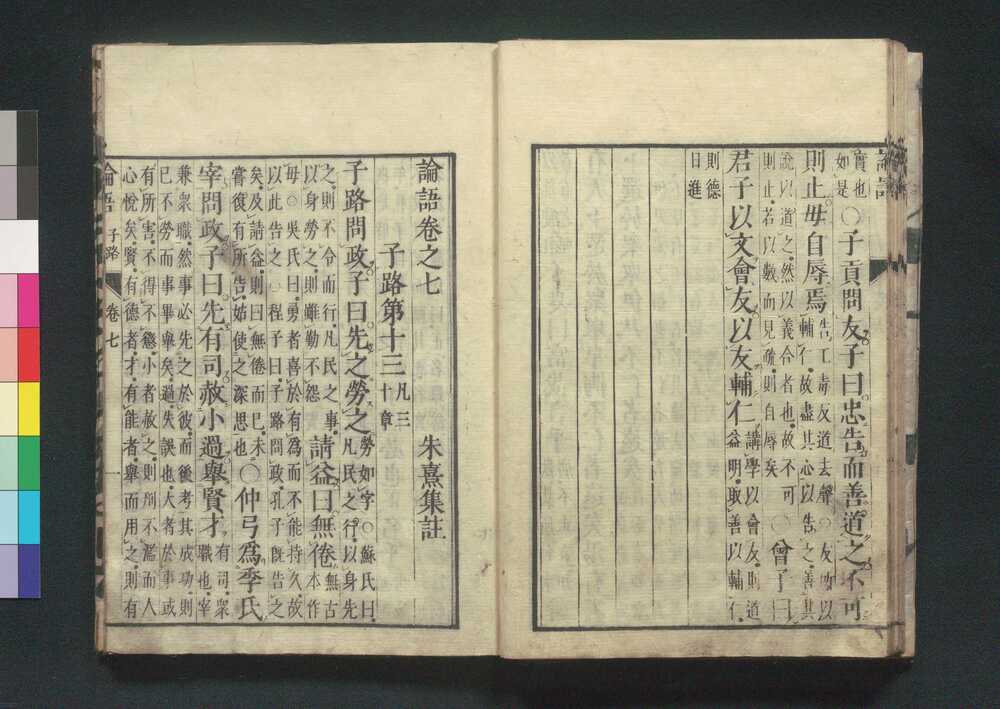 論語
實也
如是
○子貢問友子曰忠告而善道之不可
則止毋自辱焉
告工毒反道去聲○友所以
輔仁故盡其心以告之善其
說以道之然以義合者也故不可
則止若以數而見疏則自辱矣
○曾子曰
君子以文會友以友輔仁
講學以會友則道
益明取善以輔仁
則德
日進
論語卷之七 朱熹集註
子路第十三
凡三
十章
子路問政子曰先之勞之
勞如字○蘇氏曰
凡民之行以身先
之則不令而行凡民之事
以身勞之則雖勤不怨
請益曰無倦
無古
本作
毋○吳氏曰勇者喜於有為而不能持久故
以此告之○程子曰子路問政孔子旣告之
矣及請益則曰無倦而已未
嘗復有所告姑使之深思也
○仲弓爲季氏
宰問政子曰先有司赦小過舉賢才
有司衆
職也宰
兼衆職然事必先之於彼而後考其成功則
已不勞而事畢舉矣過失誤也大者於事或
有所害不得不懲小者赦之則刑不濫而人
心悅矣賢有德者才有能者舉而用之則有
論語 子路 卷七 一